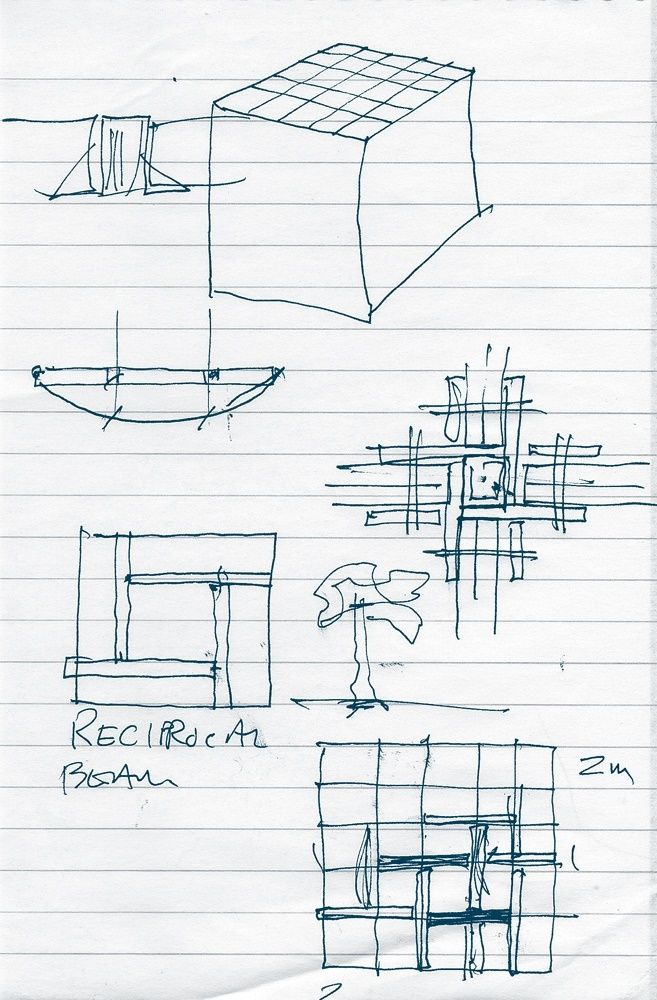 RECIPROCAL
BEAM
2m